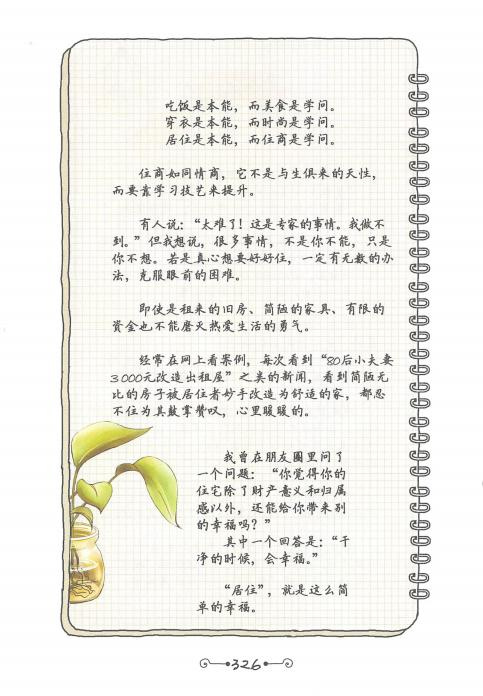 吃饭是本能，而美食是学问。
穿衣是本能，而时尚是学问。
居住是本能，而住商是学问。
住商如同情商，它不是与生俱来的天性，
而要靠学习技艺来提升。
有人说：“太难了！这是专家的事情。我做不
到。”但我想说，很多事情，不是你不能，只是
你不想。若是真心想要好好住，一定有无数的办
法，克服眼前的困难。
即使是租来的旧房、简陋的家具、有限的
资金也不能磨灭热爱生活的勇气。
经常在网上看案例，每次看到“80后小夫妻
3000元改造出租屋”之类的新闻，看到简陋无
比的房子被居住者妙手改造为舒适的家，都忍
不住为其鼓掌赞叹，心里暖暖的。
我曾在朋友圈里问了
一个问题：“你觉得你的
住宅除了财产意义和归属
感以外，还能给你带来别
的幸福吗？”
其中一个回答是：“干
净的时候，会幸福。”
“居住”，就是这么简
单的幸福。
326